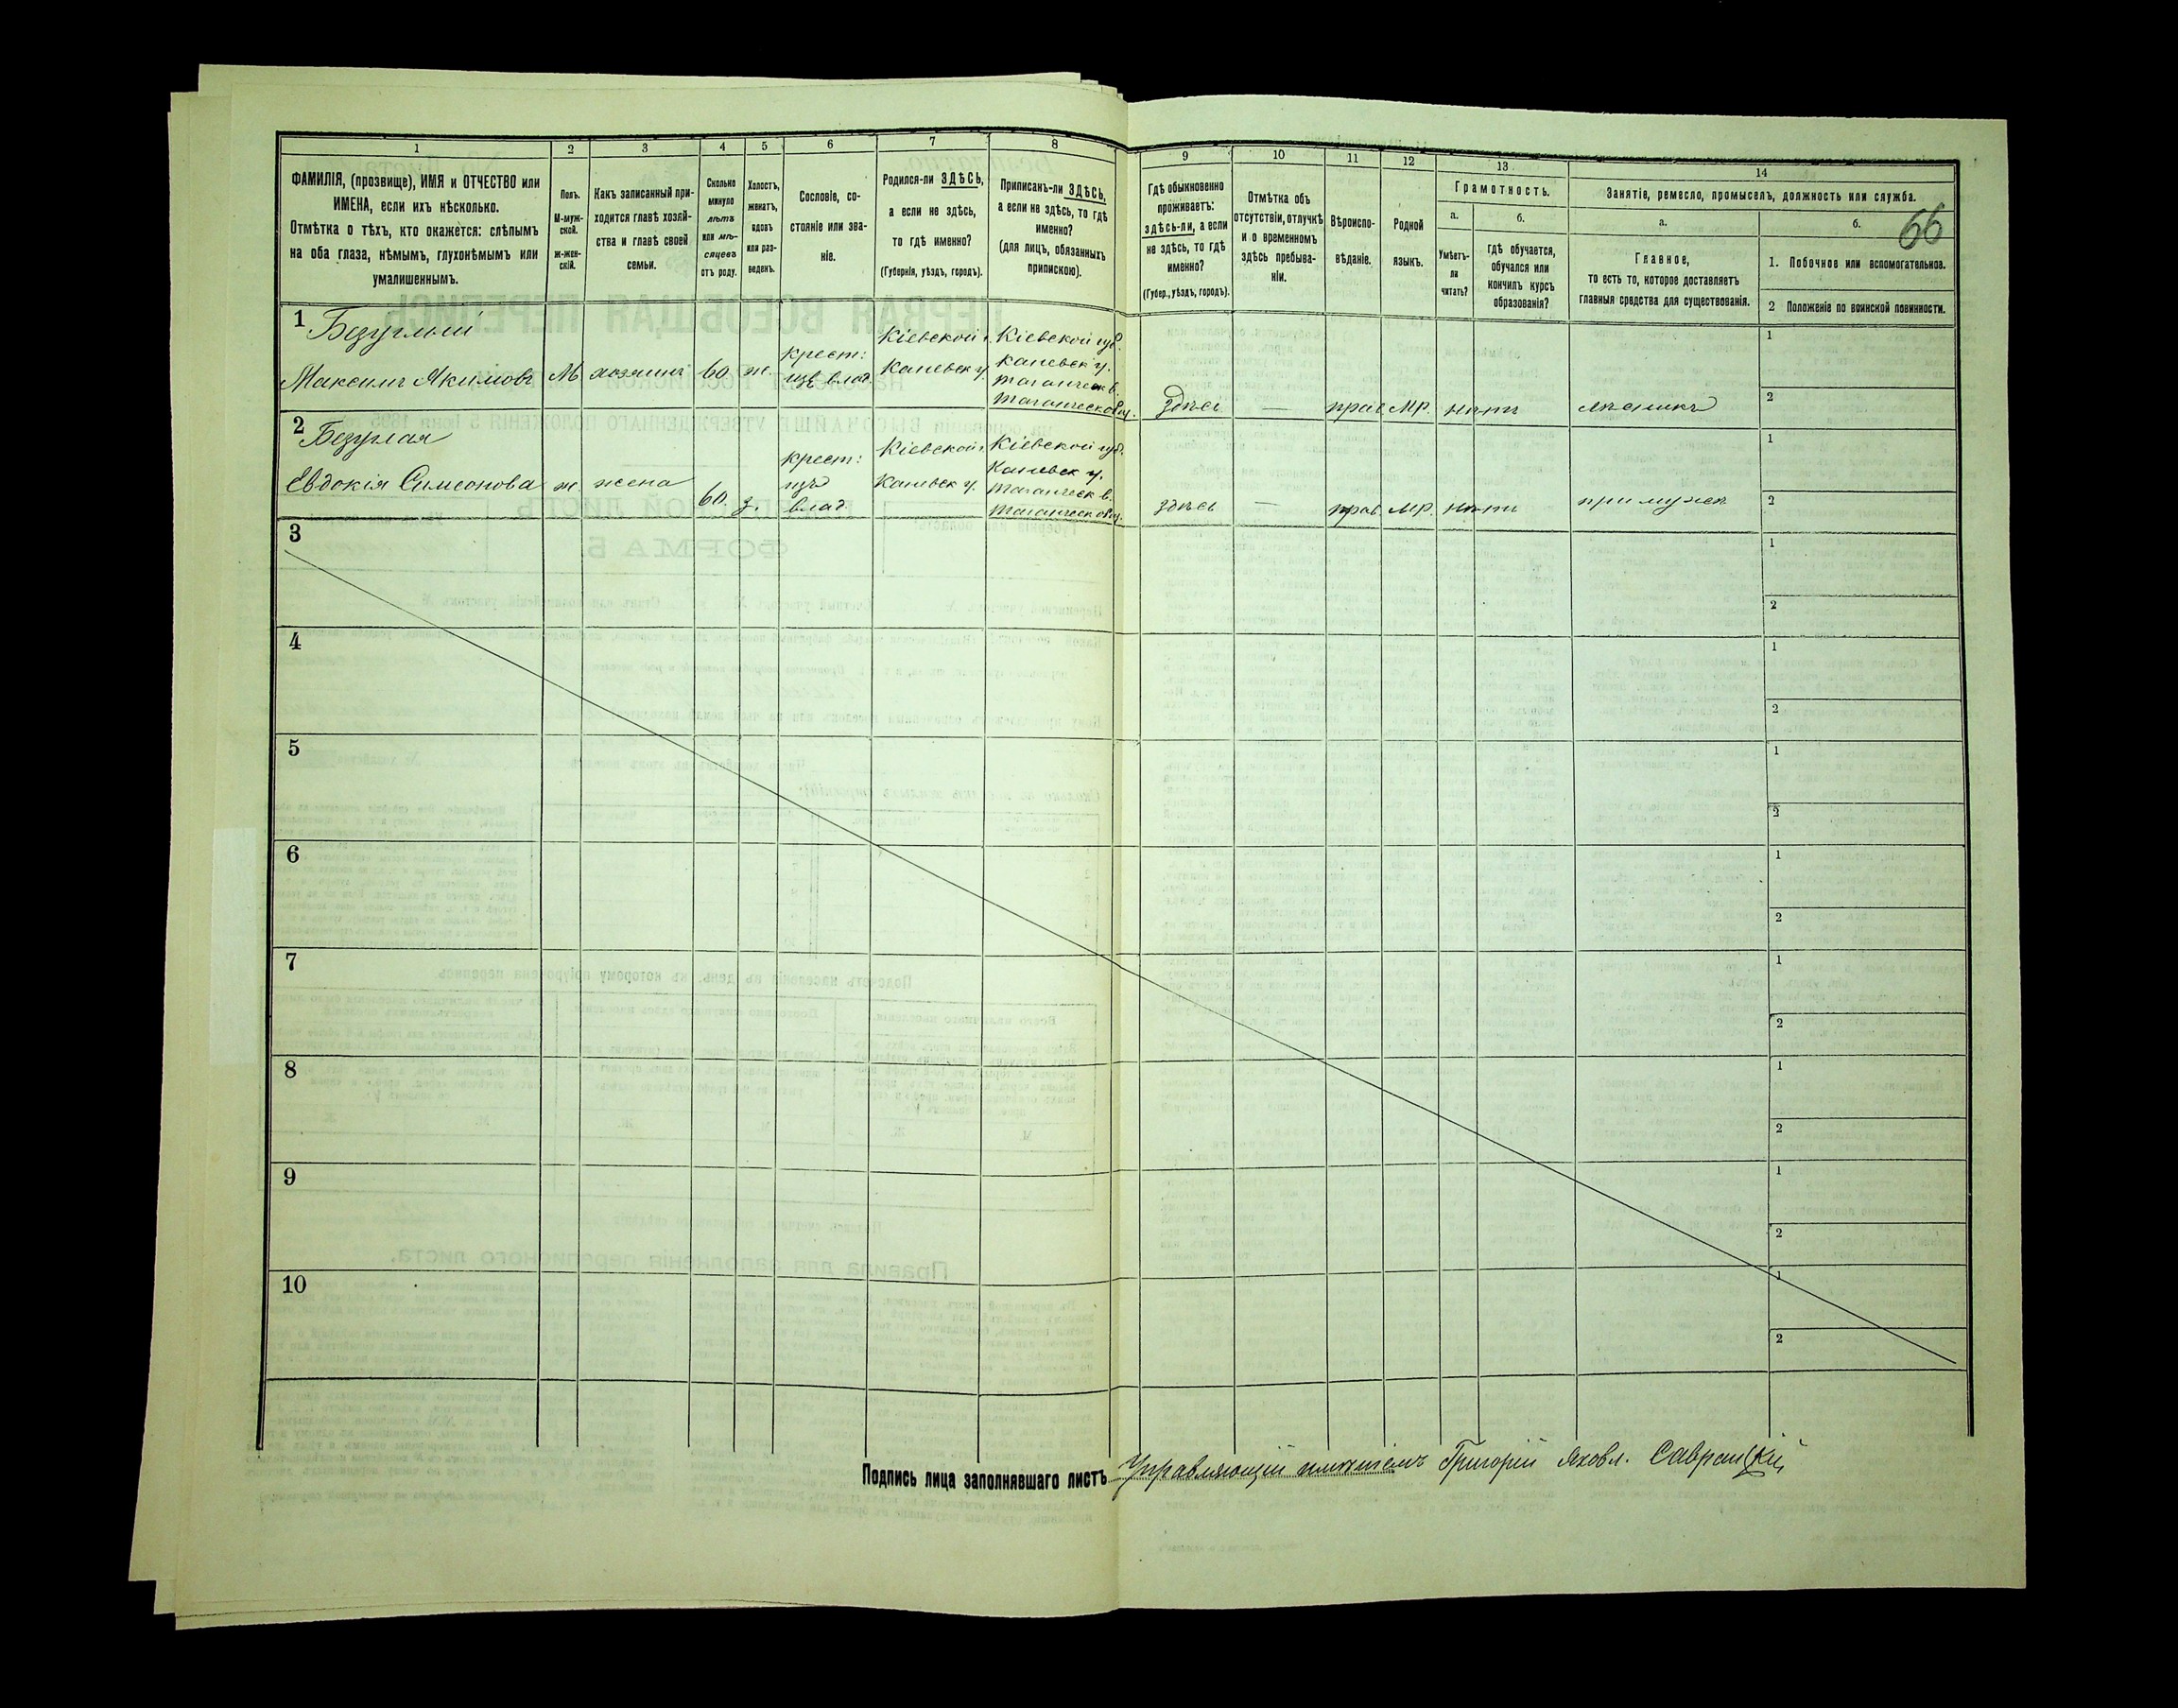 1 2 3 4 5 6 7 8 9 10 11 12 13 14
ФАМИЛІЯ, (прозвище), ИМЯ и ОТЧЕСТВО или
ИМЕНА, если ихъ нѣсколько.
Отмѣтка о тѣхъ, кто окажется: слѣпымъ
на оба глаза, нѣмымъ, глухонѣмымъ или
умалишеннымъ.
Полъ.
М-муж-
ской.
ж-жен-
скій.
Какъ записанный при-
ходится главѣ хозяй-
ства и главѣ своей
семьи.
Сколько
минуло
лѣтъ
или мѣ-
сяцевъ
отъ роду.
Холостъ,
женатъ,
вдовъ
или раз-
веденъ.
Сословіе, со-
стояніе или зва-
ніе.
Родился-ли ЗДѢСЬ,
а если не здѣсь,
то гдѣ именно?
(Губернія, уѣздъ, городъ).
Приписанъ-ли ЗДѢСЬ,
а если не здѣсь, то гдѣ
именно?
(для лицъ, обязанныхъ
припискою).
Гдѣ обыкновенно
проживаетъ:
здѣсь-ли, а если
не здѣсь, то гдѣ
именно?
(Губер., уѣздъ, городъ).
Отмѣтка объ
отсутствіи, отлучкѣ
и о временномъ
здѣсь пребыва-
ніи.
Вѣроиспо-
вѣданіе.
Родной
языкъ.
Грамотность.
а.
Умѣетъ-
ли
читать?
б.
гдѣ обучается,
обучался или
кончилъ курсъ
образованія?
Занятіе, ремесло, промыселъ, должность или служба.
а.
Главное,
то есть то, которое доставляетъ
главныя средства для существованія.
б.
66
1. Побочное или вспомогательное.
2 Положеніе по воинской повинности.
1 Безуглый
Максимъ Якимовъ
М
хозяинъ
60
ж.
крест:
изъ влад.
Кіевской г.
Каневск у.
Кіевской губ.
Каневск у.
здѣсь
—
прав
мр.
нѣтъ
1
2
2 Безуглая
Евдокія Симеонова
ж.
жена
60.
з.
крест:
изъ
влад
Кіевской г.
Каневск у.
Кіевской губ.
Каневск у.
здѣсь
—
прав
мр.
нѣтъ
при мужѣ
1
2
3
1
2
4
1
2
5
1
2
6
1
2
7
1
2
8
1
2
9
1
2
10
1
2
Подпись лица заполнявшаго листъ Управляющій имѣніемъ Григорій Яковл.